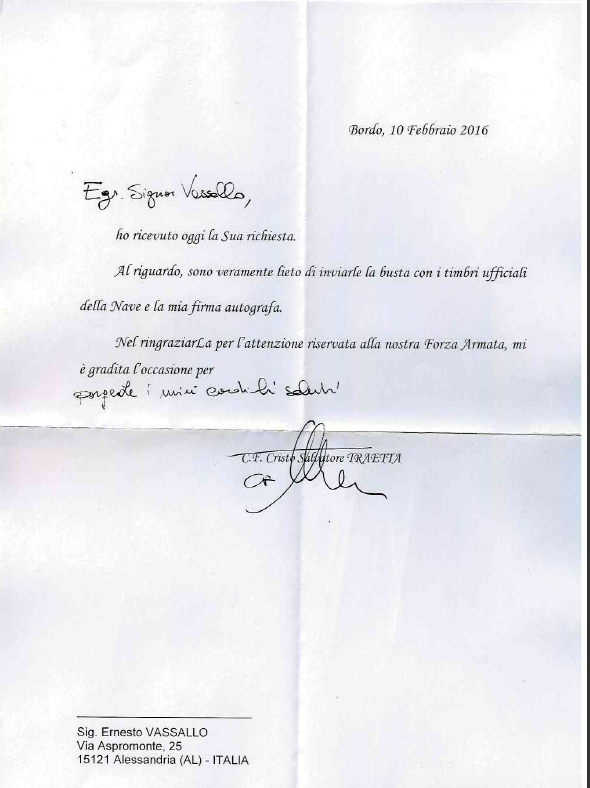 Bordo, 10 Febbraio 2016
Egr. Signor Vassallo,
ho ricevuto oggi la Sua richiesta.
Al riguardo, sono veramente lieto di inviarle la busta con i timbri ufficiali
della Nave e la mia firma autografa.
Nel ringraziarLa per l'attenzione riservata alla nostra Forza Armata, mi
è gradita l'occasione per
porgerLe i miei cordiali saluti
C.F. Cristo Salvatore TRAETTA
Sig. Ernesto VASSALLO
Via Aspromonte, 25
15121 Alessandria (AL) - ITALIA